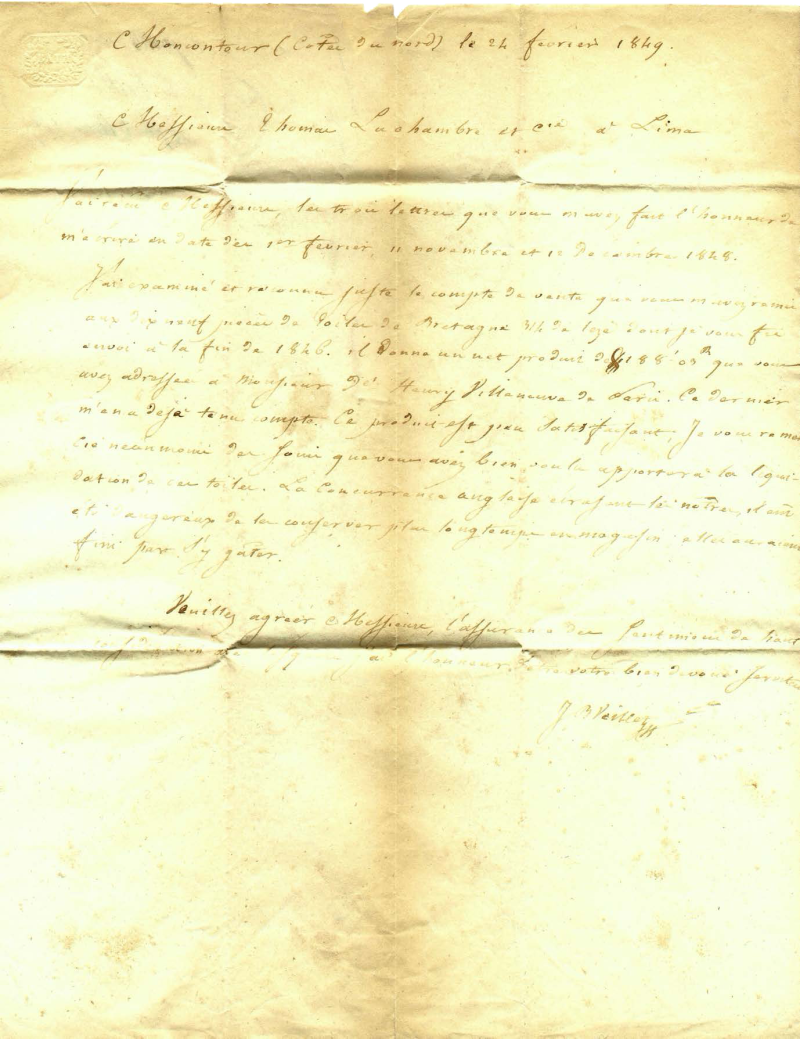 Moncontour (Cotes du nord) le 24 fevrier 1849.
Messieurs Thomas Lachambre et cie à Lima
J'ai reçu Messieurs, les trois lettres que vous m'avez fait l'honneur de
m'ecrire en date des 1er fevrier, 11 novembre et 12 Decembre 1848.
J'ai examiné et reconnu juste le compte de vente que vous m'avez remis
aux dix neuf pièces de toiles de Bretagne 3/4 de laize dont je vous fis
envoi à la fin de 1846. il donne un net produit de $ 188 " 03 que vous
avez adressée à Monsieur Dé Henry Villeneuve de Paris. Ce dernier
m'en a déjà tenu compte. Ce produit est peu satisfaisant, Je vous remer
cie neanmoins des soins que vous avez bien voulu apporter à la liqui-
dation de ces toiles. La Concurrence anglaise ecrasant les notres, il eut
eté dangereux de les conserver plus longtemps en magasin : elles auraient
fini par s'y gâter.
Veuillez agréer Messieurs, l'assurance des Sentimens de haute
l'honneur d'être votre bien devoué Serviteur
J B Veillet